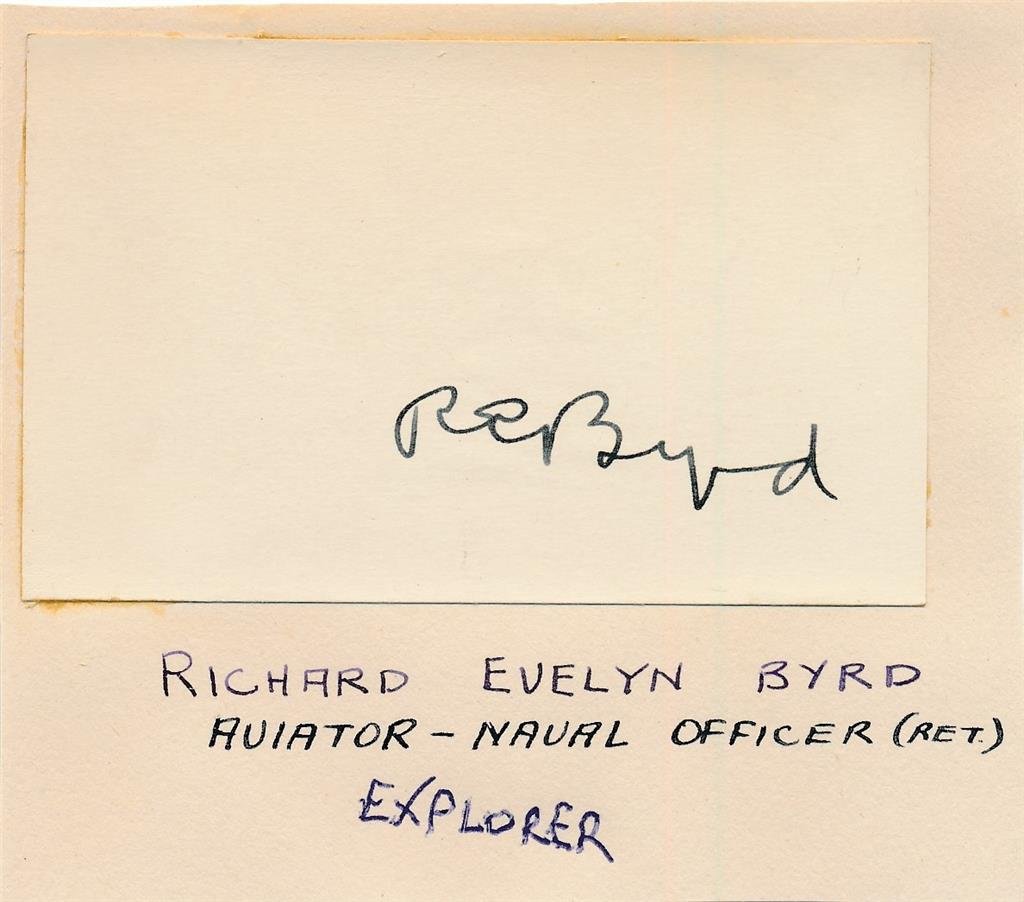 RE Byrd
RICHARD EVELYN BYRD
AVIATOR - NAVAL OFFICER (RET.)
EXPLORER